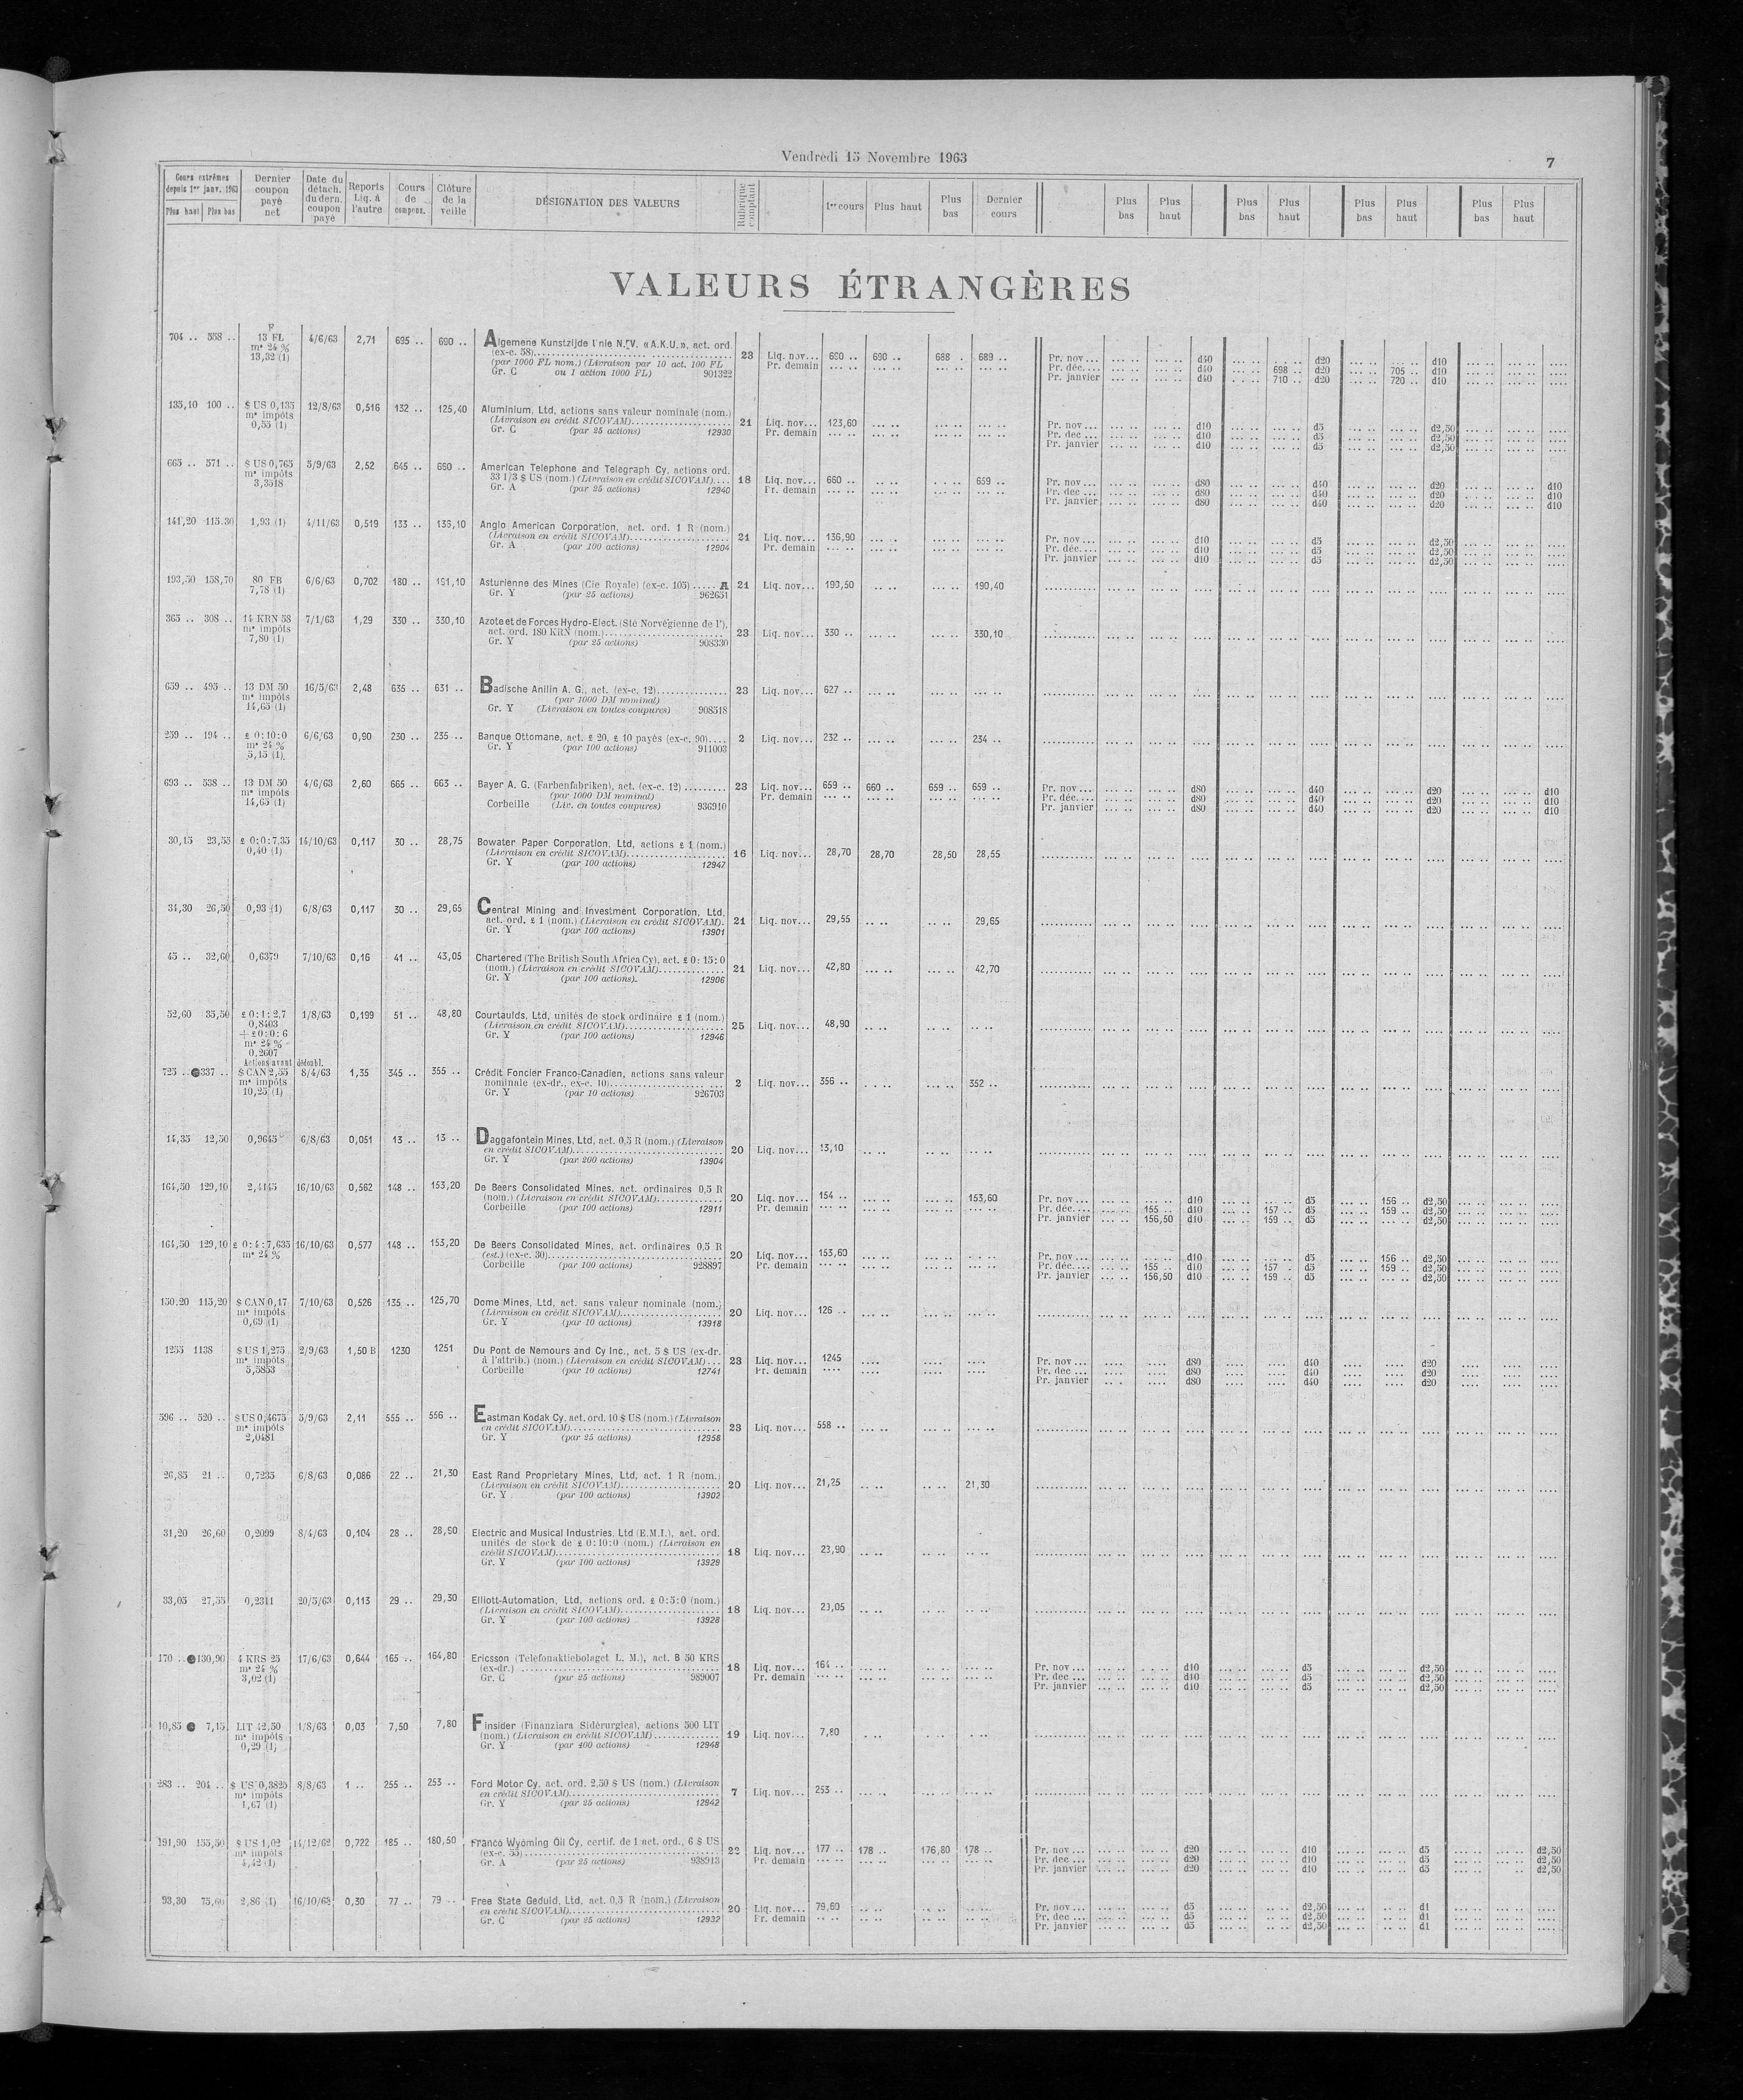 Vendredi 15 Novembre 1963
7
Cours extrêmes depuis 1er janv. 1963 Plus haut Plus bas
Dernier coupon payé net
Date du détach. du dern. coupon payé
Reports Liq. à l'autre
Cours de compens.
Clôture de la veille
DÉSIGNATION DES VALEURS
Rubrique comptant
1er cours Plus haut Plus bas Dernier cours
Plus bas Plus haut Plus bas Plus haut Plus bas Plus haut Plus bas Plus haut
VALEURS ÉTRANGÈRES
F
704 .. 558 .. 13 FL 4/6/63 2,71 695 .. 690 .. Algemene Kunstzijde Unie N.V. « A.K.U. », act. ord.
m* 24 % (ex-c. 58) 23 Liq. nov... 690 .. 690 .. 688 . 689 .. Pr. nov ... d40 d20 d10
13,32 (1) (par 1000 FL nom.) (Livraison par 10 act. 100 FL Pr. demain Pr. déc.... d40 698 .. d20 705 .. d10
Gr. C ou 1 action 1000 FL) 901322 Pr. janvier d40 710 .. d20 720 .. d10
135,10 100 .. $ US 0,135 12/8/63 0,516 132 .. 125,40 Aluminium, Ltd, actions sans valeur nominale (nom.)
m* impôts (Livraison en crédit SICOVAM) 21 Liq. nov... 123,60 Pr. nov ... d10 d5 d2,50
0,55 (1) Gr. C (par 25 actions) 12930 Pr. demain Pr. dec ... d10 d5 d2,50
Pr. janvier d10 d5 d2,50
665 .. 571 .. $ US 0,765 5/9/63 2,52 645 .. 660 .. American Telephone and Telegraph Cy, actions ord.
m* impôts 33 1/3 $ US (nom.) (Livraison en crédit SICOVAM).... 18 Liq. nov... 660 .. 659 .. Pr. nov ... d80 d40 d20 d10
3,3518 Gr. A (par 25 actions) 12940 Pr. demain Pr. dec ... d80 d40 d20 d10
Pr. janvier d80 d40 d20 d10
141,20 115,30 1,93 (1) 4/11/63 0,519 133 .. 136,10 Anglo American Corporation, act. ord. 1 R (nom.)
(Livraison en crédit SICOVAM) 21 Liq. nov... 136,90 Pr. nov ... d10 d5 d2,50
Gr. A (par 100 actions) 12904 Pr. demain Pr. déc.... d10 d5 d2,50
Pr. janvier d10 d5 d2,50
193,50 158,70 80 FB 6/6/63 0,702 180 .. 191,10 Asturienne des Mines (Cie Royale) (ex-c. 105) ..... A 21 Liq. nov... 190,50 190,40
7,78 (1) Gr. Y (par 25 actions) 962651
365 .. 308 .. 14 KRN 58 7/1/63 1,29 330 .. 330,10 Azote et de Forces Hydro-Elect. (Sté Norvégienne de l'),
m* impôts act. ord. 180 KRN (nom.) 23 Liq. nov... 330 .. 330,10
7,80 (1) Gr. Y (par 25 actions) 908330
659 .. 495 .. 13 DM 50 16/5/63 2,48 635 .. 631 .. Badische Anilin A. G., act. (ex-c. 12) 23 Liq. nov... 627 ..
m* impôts (par 1000 DM nominal)
14,65 (1) Gr. Y (Livraison en toutes coupures) 908518
259 .. 194 .. £ 0:10:0 6/6/63 0,90 230 .. 235 .. Banque Ottomane, act. £ 20, £ 10 payés (ex-c. 90).... 2 Liq. nov... 232 .. 234 ..
m* 24 % Gr. Y (par 100 actions) 911003
5,15 (1)
693 .. 538 .. 13 DM 50 4/6/63 2,60 665 .. 663 .. Bayer A. G. (Farbenfabriken), act. (ex-c. 12) 23 Liq. nov... 659 .. 660 .. 659 .. 659 .. Pr. nov ... d80 d40 d20 d10
m* impôts (par 1000 DM nominal) Pr. demain Pr. déc.... d80 d40 d20 d10
14,65 (1) Corbeille (Liv. en toutes coupures) 936910 Pr. janvier d80 d40 d20 d10
30,15 23,55 £ 0:0:7,35 14/10/63 0,117 30 .. 28,75 Bowater Paper Corporation, Ltd, actions £ 1 (nom.)
0,40 (1) (Livraison en crédit SICOVAM) 16 Liq. nov... 28,70 28,70 28,50 28,55
Gr. Y (par 100 actions) 12947
34,30 26,50 0,93 (1) 6/8/63 0,117 30 .. 29,65 Central Mining and Investment Corporation, Ltd,
act. ord. £ 1 (nom.) (Livraison en crédit SICOVAM). 21 Liq. nov... 29,55 29,65
Gr. Y (par 100 actions) 13901
45 .. 32,60 0,6379 7/10/63 0,16 41 .. 43,05 Chartered (The British South Africa Cy), act. £ 0:15:0
(nom.) (Livraison en crédit SICOVAM) 21 Liq. nov... 42,80 42,70
Gr. Y (par 100 actions) 12906
52,60 35,50 £ 0:1:2,7 1/8/63 0,199 51 .. 48,80 Courtaulds, Ltd, unités de stock ordinaire £ 1 (nom.)
0,8403 (Livraison en crédit SICOVAM) 25 Liq. nov... 48,90
+ £ 0:0:6 Gr. Y (par 100 actions) 12946
m* 24 %
0,2607
Actions avant dédoubl.
725 .. 337 .. $ CAN 2,55 8/4/63 1,35 345 .. 355 .. Crédit Foncier Franco-Canadien, actions sans valeur
m* impôts nominale (ex-dr., ex-c. 10) 2 Liq. nov... 356 .. 352 ..
10,25 (1) Gr. Y (par 10 actions) 926703
14,35 12,50 0,9645 6/8/63 0,051 13 .. 13 .. Daggafontein Mines, Ltd, act. 0,5 R (nom.) (Livraison
en crédit SICOVAM) 20 Liq. nov... 13,10
Gr. Y (par 200 actions) 13904
164,50 129,10 2,4145 16/10/63 0,562 148 .. 153,20 De Beers Consolidated Mines, act. ordinaires 0,5 R
(nom.) (Livraison en crédit SICOVAM) 20 Liq. nov... 154 .. 153,60 Pr. nov ... d10 d5 156 .. d2,50
Corbeille (par 100 actions) 12911 Pr. demain Pr. déc.... 155 .. d10 157 .. d5 159 .. d2,50
Pr. janvier 156,50 d10 159 .. d5 d2,50
164,50 129,10 £ 0:4:7,635 16/10/63 0,577 148 .. 153,20 De Beers Consolidated Mines, act. ordinaires 0,5 R
m* 24 % (est.) (ex-c. 30) 20 Liq. nov... 153,60 Pr. nov ... d10 d5 156 .. d2,50
Corbeille (par 100 actions) 928897 Pr. demain Pr. déc.... 155 .. d10 157 . d5 159 .. d2,50
Pr. janvier 156,50 d10 159 .. d5 d2,50
150,20 115,20 $ CAN 0,17 7/10/63 0,526 135 .. 125,70 Dome Mines, Ltd, act. sans valeur nominale (nom.)
m* impôts (Livraison en crédit SICOVAM) 20 Liq. nov... 126 ..
0,69 (1) Gr. Y (par 10 actions) 13918
1255 1138 $ US 1,275 2/9/63 1,50 B 1230 1251 Du Pont de Nemours and Cy Inc., act. 5 $ US (ex-dr.
m* impôts à l'attrib.) (nom.) (Livraison en crédit SICOVAM) ... 23 Liq. nov... 1245 Pr. nov ... d80 d40 d20
5,5853 Corbeille (par 10 actions) 12741 Pr. demain Pr. dec ... d80 d40 d20
Pr. janvier d80 d40 d20
596 .. 520 .. $ US 0,4675 5/9/63 2,11 555 .. 556 .. Eastman Kodak Cy, act. ord. 10 $ US (nom.) (Livraison
m* impôts en crédit SICOVAM) 23 Liq. nov... 558 ..
2,0481 Gr. Y (par 25 actions) 12958
26,85 21 .. 0,7235 6/8/63 0,086 22 .. 21,30 East Rand Proprietary Mines, Ltd, act. 1 R (nom.)
(Livraison en crédit SICOVAM) 20 Liq. nov... 21,25 21,30
Gr. Y (par 100 actions) 13902
31,20 26,60 0,2099 8/4/63 0,104 28 .. 28,90 Electric and Musical Industries, Ltd (E.M.I.), act. ord.
unités de stock de £ 0:10:0 (nom.) (Livraison en
crédit SICOVAM) 18 Liq. nov... 23,90
Gr. Y (par 100 actions) 13929
33,05 27,55 0,2311 20/5/63 0,113 29 .. 29,30 Elliott-Automation, Ltd, actions ord. £ 0:5:0 (nom.)
(Livraison en crédit SICOVAM) 18 Liq. nov... 29,05
Gr. Y (par 100 actions) 13928
170 .. 130,90 4 KRS 25 17/6/63 0,644 165 .. 164,80 Ericsson (Telefonaktiebolaget L. M.), act. B 50 KRS
m* 24 % (ex-dr.) 18 Liq. nov... 164 .. Pr. nov ... d10 d5 d2,50
3,02 (1) Gr. C (par 25 actions) 989007 Pr. demain Pr. dec ... d10 d5 d2,50
Pr. janvier d10 d5 d2,50
10,85 7,15 LIT 42,50 1/8/63 0,03 7,50 7,80 Finsider (Finanziara Sidérurgica), actions 500 LIT
m* impôts (nom.) (Livraison en crédit SICOVAM) 19 Liq. nov... 7,80
0,29 (1) Gr. Y (par 400 actions) 12948
283 .. 204 .. $ US 0,3825 8/8/63 1 .. 255 .. 253 .. Ford Motor Cy, act. ord. 2,50 $ US (nom.) (Livraison
m* impôts en crédit SICOVAM) 7 Liq. nov... 253 ..
1,67 (1) Gr. Y (par 25 actions) 12942
191,90 155,50 $ US 1,02 14/12/62 0,722 185 .. 180,50 Franco Wyoming Oil Cy, certif. de 1 act. ord., 6 $ US
m* impôts (ex-c. 55) 22 Liq. nov... 177 .. 178 .. 176,80 178 .. Pr. nov ... d20 d10 d5 d2,50
4,42 (1) Gr. A (par 25 actions) 938913 Pr. demain Pr. dec ... d20 d10 d5 d2,50
Pr. janvier d20 d10 d5 d2,50
93,30 75,60 2,86 (1) 16/10/63 0,30 77 .. 79 .. Free State Geduld, Ltd, act. 0,5 R (nom.) (Livraison
en crédit SICOVAM) 20 Liq. nov... 79,60 Pr. nov ... d5 d2,50 d1
Gr. C (par 25 actions) 12932 Pr. demain Pr. dec ... d5 d2,50 d1
Pr. janvier d5 d2,50 d1